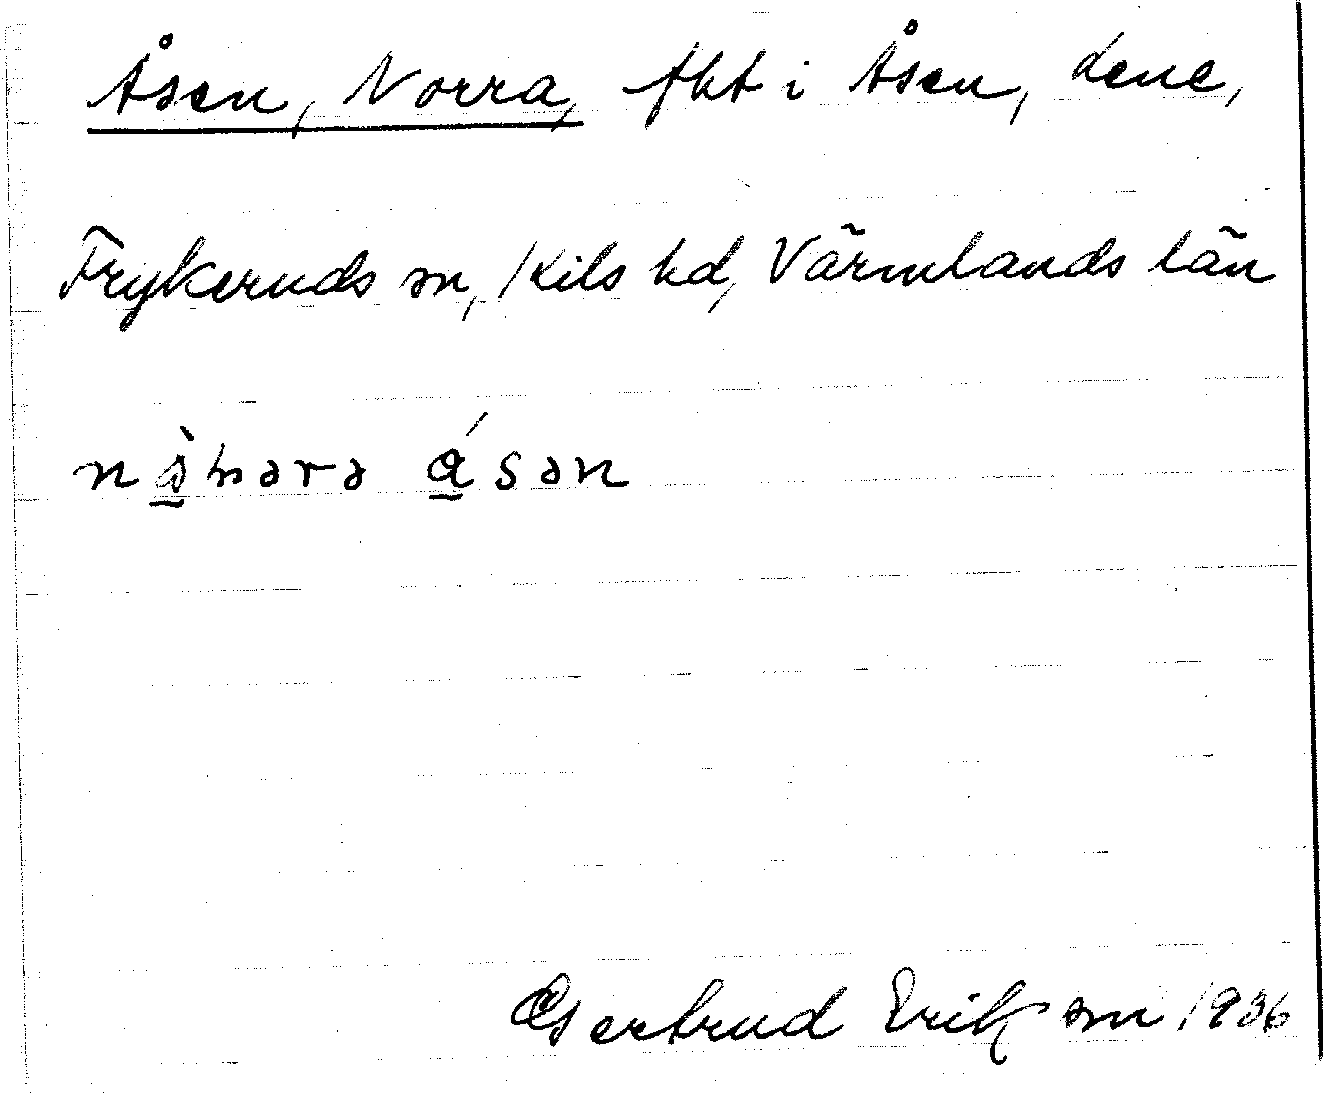 Åsen, Norra, fht i Åsen, dene,
Frykeruds sn, Kils hd, Värmlands län
ásən
Gertrud Erikson 1936